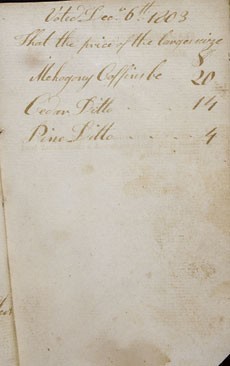 Voted Decr 6th 1803
That the price of the larger size
$
Mahogony Coffins be 20
Cedar Ditto 14
Pine Ditto 4